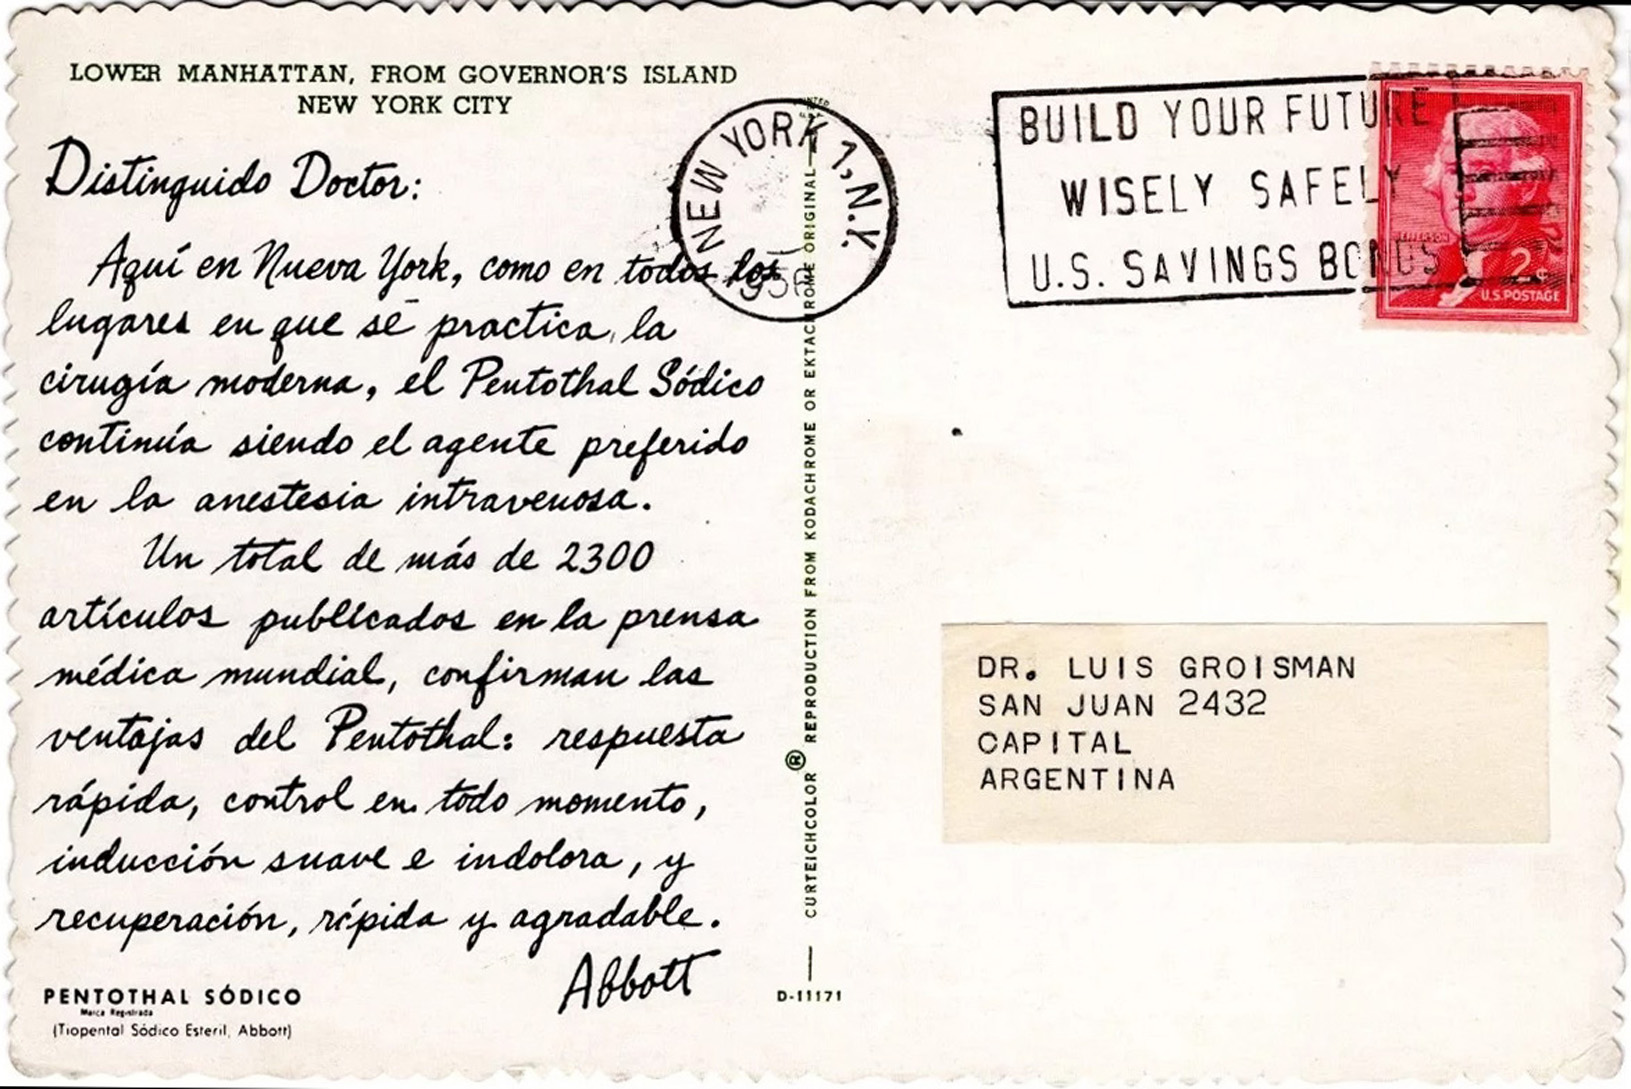 LOWER MANHATTAN, FROM GOVERNOR'S ISLAND
NEW YORK CITY
Distinguido Doctor:
Aquí en Nueva York, como en todos los
lugares en que se practica la
cirugía moderna, el Pentothal Sódico
continúa siendo el agente preferido
en la anestesia intravenosa.
Un total de más de 2300
artículos publicados en la prensa
médica mundial, confirman las
ventajas del Pentothal: respuesta
rápida, control en todo momento,
inducción suave e indolora, y
recuperación, rápida y agradable.
Abbott
PENTOTHAL SÓDICO
Marca Registrada
(Tiopental Sódico Esteril, Abbott)
CURTEICHCOLOR ® REPRODUCTION FROM KODACHROME OR EKTACHROME ORIGINAL
D-11171
NEW YORK 1, N.Y.
BUILD YOUR FUTURE
WISELY SAFELY
U.S. SAVINGS BONDS
JEFFERSON
2¢
U.S. POSTAGE
DR. LUIS GROISMAN
SAN JUAN 2432
CAPITAL
ARGENTINA